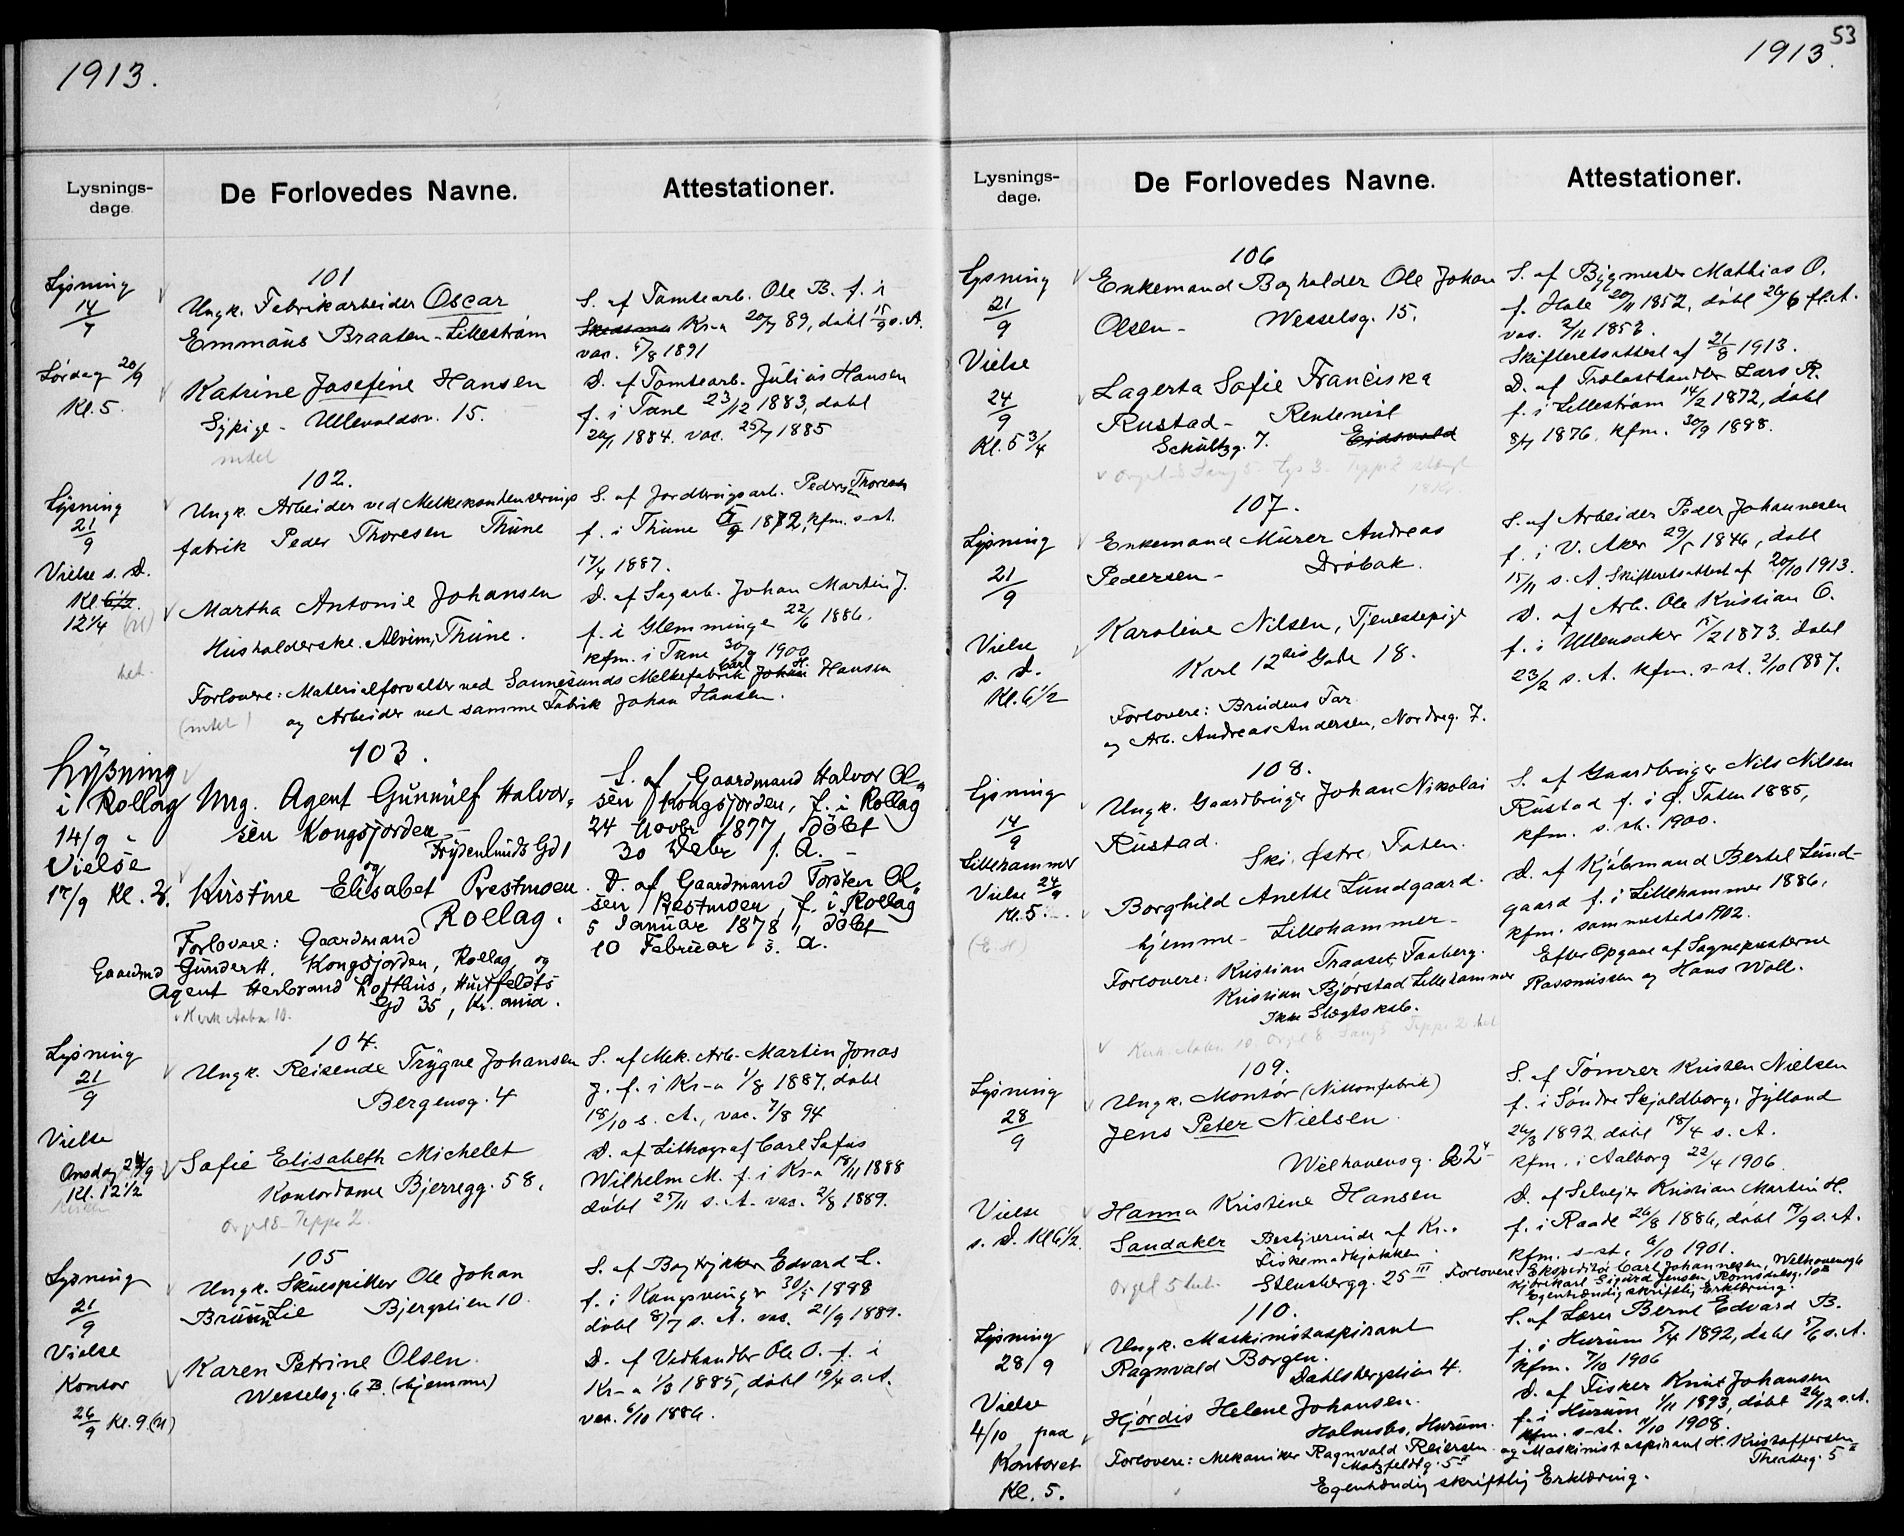 1913.
Lysnings-
dage.
De Forlovedes Navne.
Attestationer.
101
Lysning
14/9
Lørdag 20/9
Kl. 5.
Ungk. Fabrikarbeider Oscar
Emmaus Braaten - Lillestrøm
Katrine Josefine Hansen
Sypige - Ullevoldsv. 15.
intet
S. af Tomtearb. Ole B. f. i
Skedsmo Kr-a 20/7 89, døbt 15/9 s. A.
vac. 5/8 1891
D. af Tomtearb. Julius Hansen
f. i Tune 23/12 1883, døbt
20/1 1884. vac. 25/7 1885
102.
Lysning
21/9
Vielse s. D.
Kl. 6 1/2.
12 1/4 (U)
Ungk. Arbeider ved Melkekondenserings
fabrik Peder Thoresen Thune
Martha Antonie Johansen
Husholderske. Alvim, Thune.
Forlovere: Materialforvalter ved Sannesunds Melkefabrik Carl H. Johan Hansen
(intet) og Arbeider ved samme Fabrik Johan Hansen.
S. af Jordbrugsarb. Peder Thoresen
f. i Thune 5/9 1872, kfm. s-st.
17/4 1887.
D. af Sagarb. Johan Martin J.
f. i Glemminge 22/6 1886.
kfm. i Tune 30/9 1900
103.
Lysning
i Rollag
14/9 -
Vielse
17/9 Kl. 3.
Ung. Agent Gunnulf Halvor-
sen Kongsjorden
Frydenlunds Gd 1
og
Kristine Elisabet Prestmoen
Rollag.
Forlovere: Gaardmand
Gaardmd Gunder H. Kongsjorden, Rollag, og
Agent Herbrand Lofthus, Huitfeldts
Gd 35, Kr.ania.
S. af Gaardmand Halvor Ol-
sen Kongsjorden, f. i Rollag
24 Novbr 1877, døbt
30 Decbr s. A. -
D. af Gaardmand Torsten Ol-
sen Prestmoen, f. i Rollag
5 Januar 1878, døbt
10 Februar s. A.
104.
Lysning
21/9
Vielse
Onsdag 24/9
Kl. 12 1/2
Kirken
Ungk. Reisende Trygve Johansen
Bergensg. 4
Sofie Elisabeth Michelet
Kontordame Bjerregg. 58.
Orgel 8 - Teppe 2.
S. af Mek. Arb. Martin Jonas
J. f. i Kr-a 1/8 1887, døbt
18/10 s. A., vac. 7/8 94
D. af Lithograf Carl Sofus
Wilhelm M. f. i Kr-a 18/11 1888
døbt 25/11 s. A. vac. 2/8 1889.
105
Lysning
21/9
Vielse
Kontor
26/9 Kl. 9. (U)
Ungk. Skuespiller Ole Johan
Bruun Lie Bjergslien 10.
Karen Petrine Olsen.
Wesselsg. 6 B. (hjemme)
S. af Bogtrykker Edvard L.
f. i Kongsvinger 30/5 1888
døbt 8/7 s. A. vac. 21/9 1889.
D. af Vedhandler Ole O. f. i
Kr-a 1/3 1885, døbt 19/4 s. A.
vac. 6/10 1886.
53
1913.
Lysnings-
dage.
De Forlovedes Navne.
Attestationer.
106
Lysning
21/9
Vielse
24/9
Kl. 5 3/4
Enkemand Bogholder Ole Johan
Olsen - Wesselsg. 15.
Lagerta Sofie Franciska
Rustad - Rentenist
Schultzg. 7. Eidsvold
S. af Bygmester Mathias O.
f. Hole 20/11 1852, døbt 26/6 fl. A.
vac. 2/11 1853.
Skifteretsattest af 21/8 1913.
D. af Trælasthandler Lars R.
f. i Lillestrøm 14/2 1872, døbt
8/4 1876. kfm. 30/9 1888.
107.
Lysning
21/9
Vielse
s. D.
Kl. 6 1/2
Enkemand Murer Andreas
Pedersen - Drøbak.
Karoline Nilsen, Tjenestepige
Karl 12tes Gate 18.
Forlovere: Brudens Far
og Arb. Andreas Andersen, Nordreg. 7.
S. af Arbeider Peder Johannesen
f. i V. Aker 29/5 1846, døbt
15/11 s. A. Skifteretsattest af 20/10 1913.
D. af Arb. Ole Kristian O.
f. i Ullensaker 15/2 1873, døbt
23/2 s. A. kfm. s-st. 2/10 1887.
108.
Lysning
14/9
Lillehammer
Vielse 24/9
Kl. 5.
Ungk. Gaardbruger Johan Nikolai
Rustad. Ski, Østre Toten.
Borghild Anette Lundgaard.
hjemme - Lillehammer -
Forlovere: Kristian Thraaset, Faaberg.
Kristian Bjørstad Lillehammer
Ikke Slægtskab.
Kirk. Aaben 10. Orgel 8 Sang 5 Teppe 2 bet
S. af Gaardbruger Nils Nilsen
Rustad f. i Ø. Toten 1885,
kfm. s. st. 1900.
D. af Kjøbmand Bertel Lund-
gaard f. i Lillehammer 1886,
kfm. sammesteds 1902.
Efter Opgave af Sognepresterne
Rasmussen og Hans Woll.
109.
Lysning
28/9
Vielse
s. D. Kl 6 1/2.
Ungk. Montør (Nittonfabrik)
Jens Peter Nielsen.
Welhavensg. 22
Hanna Kristine Hansen
Sandaker Bestyrerinde af Kr.a
Fiskemadkjøkken.
Orgel 5 bet. Stensbergg. 25 III
S. af Tømrer Kristen Nielsen
f. i Søndre Skjoldborg, Jylland
26/3 1892, døbt 18/4 s. A.
kfm. i Aalborg 22/4 1906.
D. af Selveier Kristian Martin H.
f. i Raade 26/8 1886, døbt 19/9 s. A.
kfm. s-st. 6/10 1901.
Forlovere: Ekspeditør Carl Johannesen, Welhavensg 6
Kjørekarl Sigurd Jensen, Romsdalsg. 10
Egenhændig skriftlig Erklæring.
110.
Lysning
28/9
Vielse
4/10 paa
Kontoret
Kl. 5.
Ungk. Maskinistaspirant
Ragnvald Borgen.
Dahlsbergstien 4.
Hjørdis Helene Johansen.
Holmsbo, Hurum.
Forlovere: Mekaniker Ragnvald Reiersen og Maskinistaspirant H. Kristoffersen
Motzfeldtg. 5 II Theaterg. 5 II
Egenhændig skriftlig Erklæring.
S. af Lærer Bernt Edvard B.
f. i Hurum 5/4 1892, døbt 5/6 s. A.
kfm. 7/10 1906
D. af Fisker Knut Johansen
f. i Hurum 1/11 1893, døbt 26/12 s. A.
kfm. s-st. 11/10 1908.